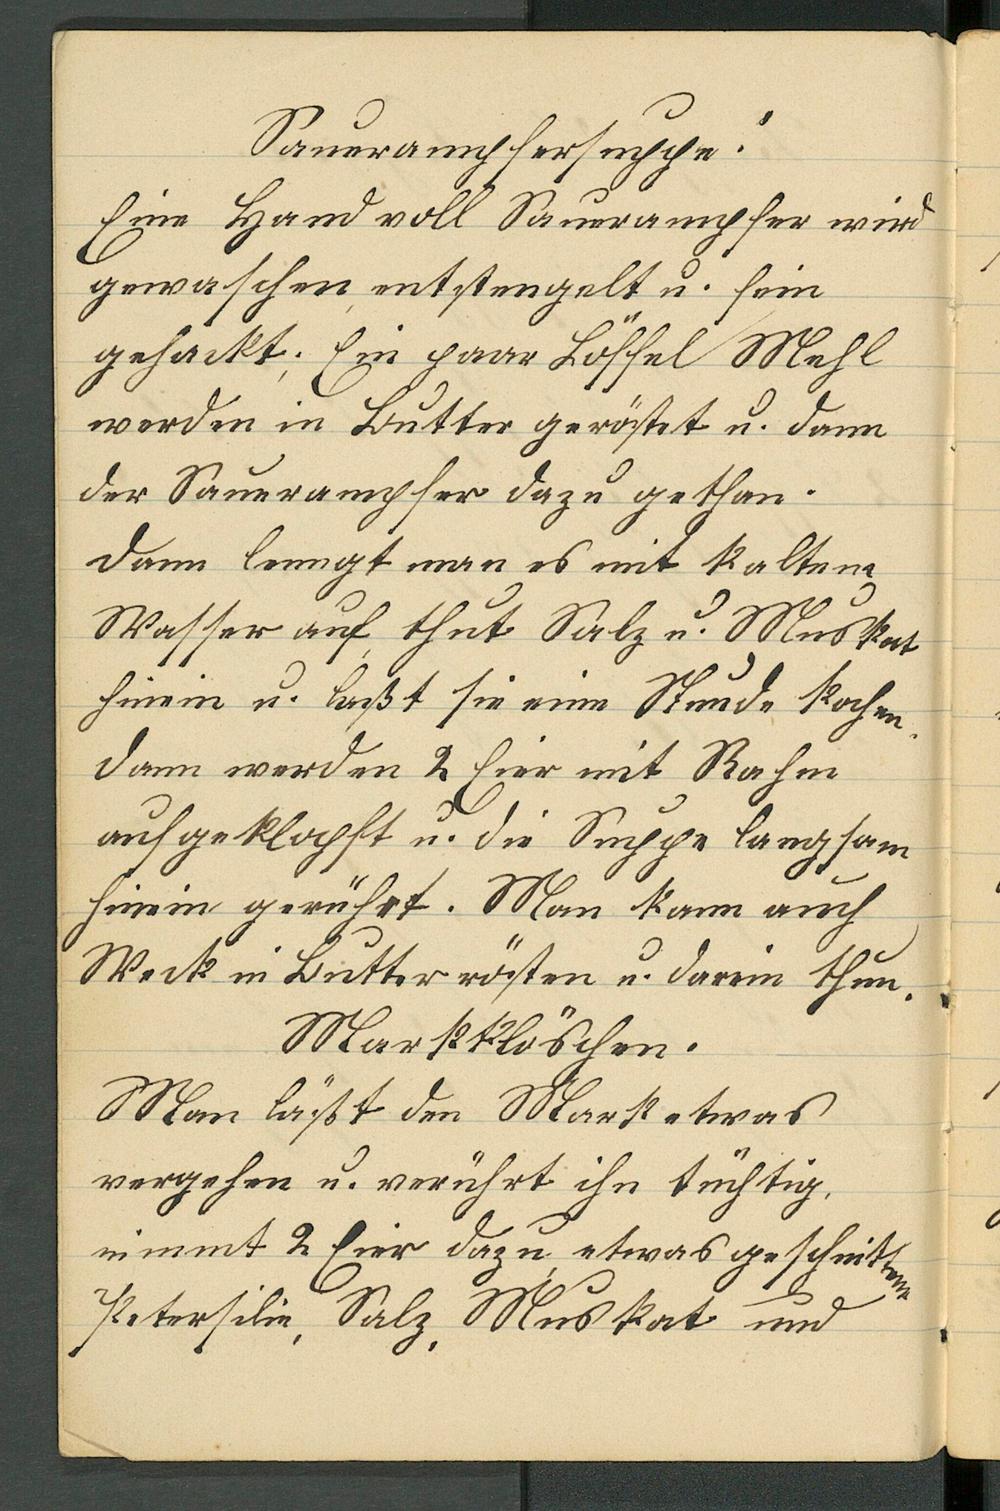 Sauerampfersuppe.
Eine Hand voll Sauerampfer wird
gewaschen, entstengelt u. fein
gehackt. Ein paar Löffel Mehl
werden in Butter geröstet u. dann
der Sauerampfer dazu gethan.
Dann lengt man es mit kaltem
Wasser auf, thut Salz u. Muskat
hinein u. laßt sie eine Stunde kochen.
Dann werden 2 Eier mit Rahm
aufgeklopft u. die Suppe langsam
hinein gerührt. Man kann auch
Weck in Butter rösten u. darein thun.
Markklöschen.
Man läßt den Mark etwas
vergehen u. verührt ihn tüchtig,
nimmt 2 Eier dazu, etwas geschnittene
Petersilie, Salz, Muskat und